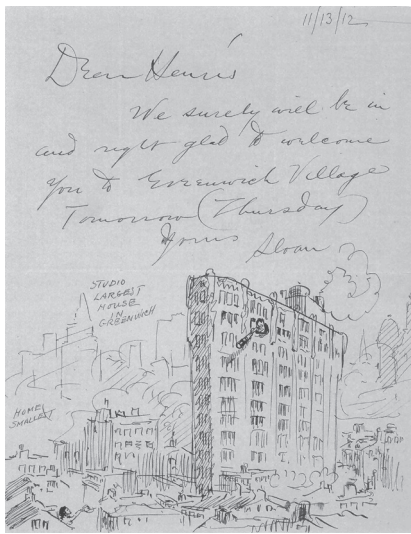 11/13/12
Dear Henris
We surely will be in
and right glad to welcome
you to Greenwich Village
Tomorrow (Thursday)
Yours Sloan
STUDIO
LARGEST
HOUSE
IN
GREENWICH
HOME
SMALLEST